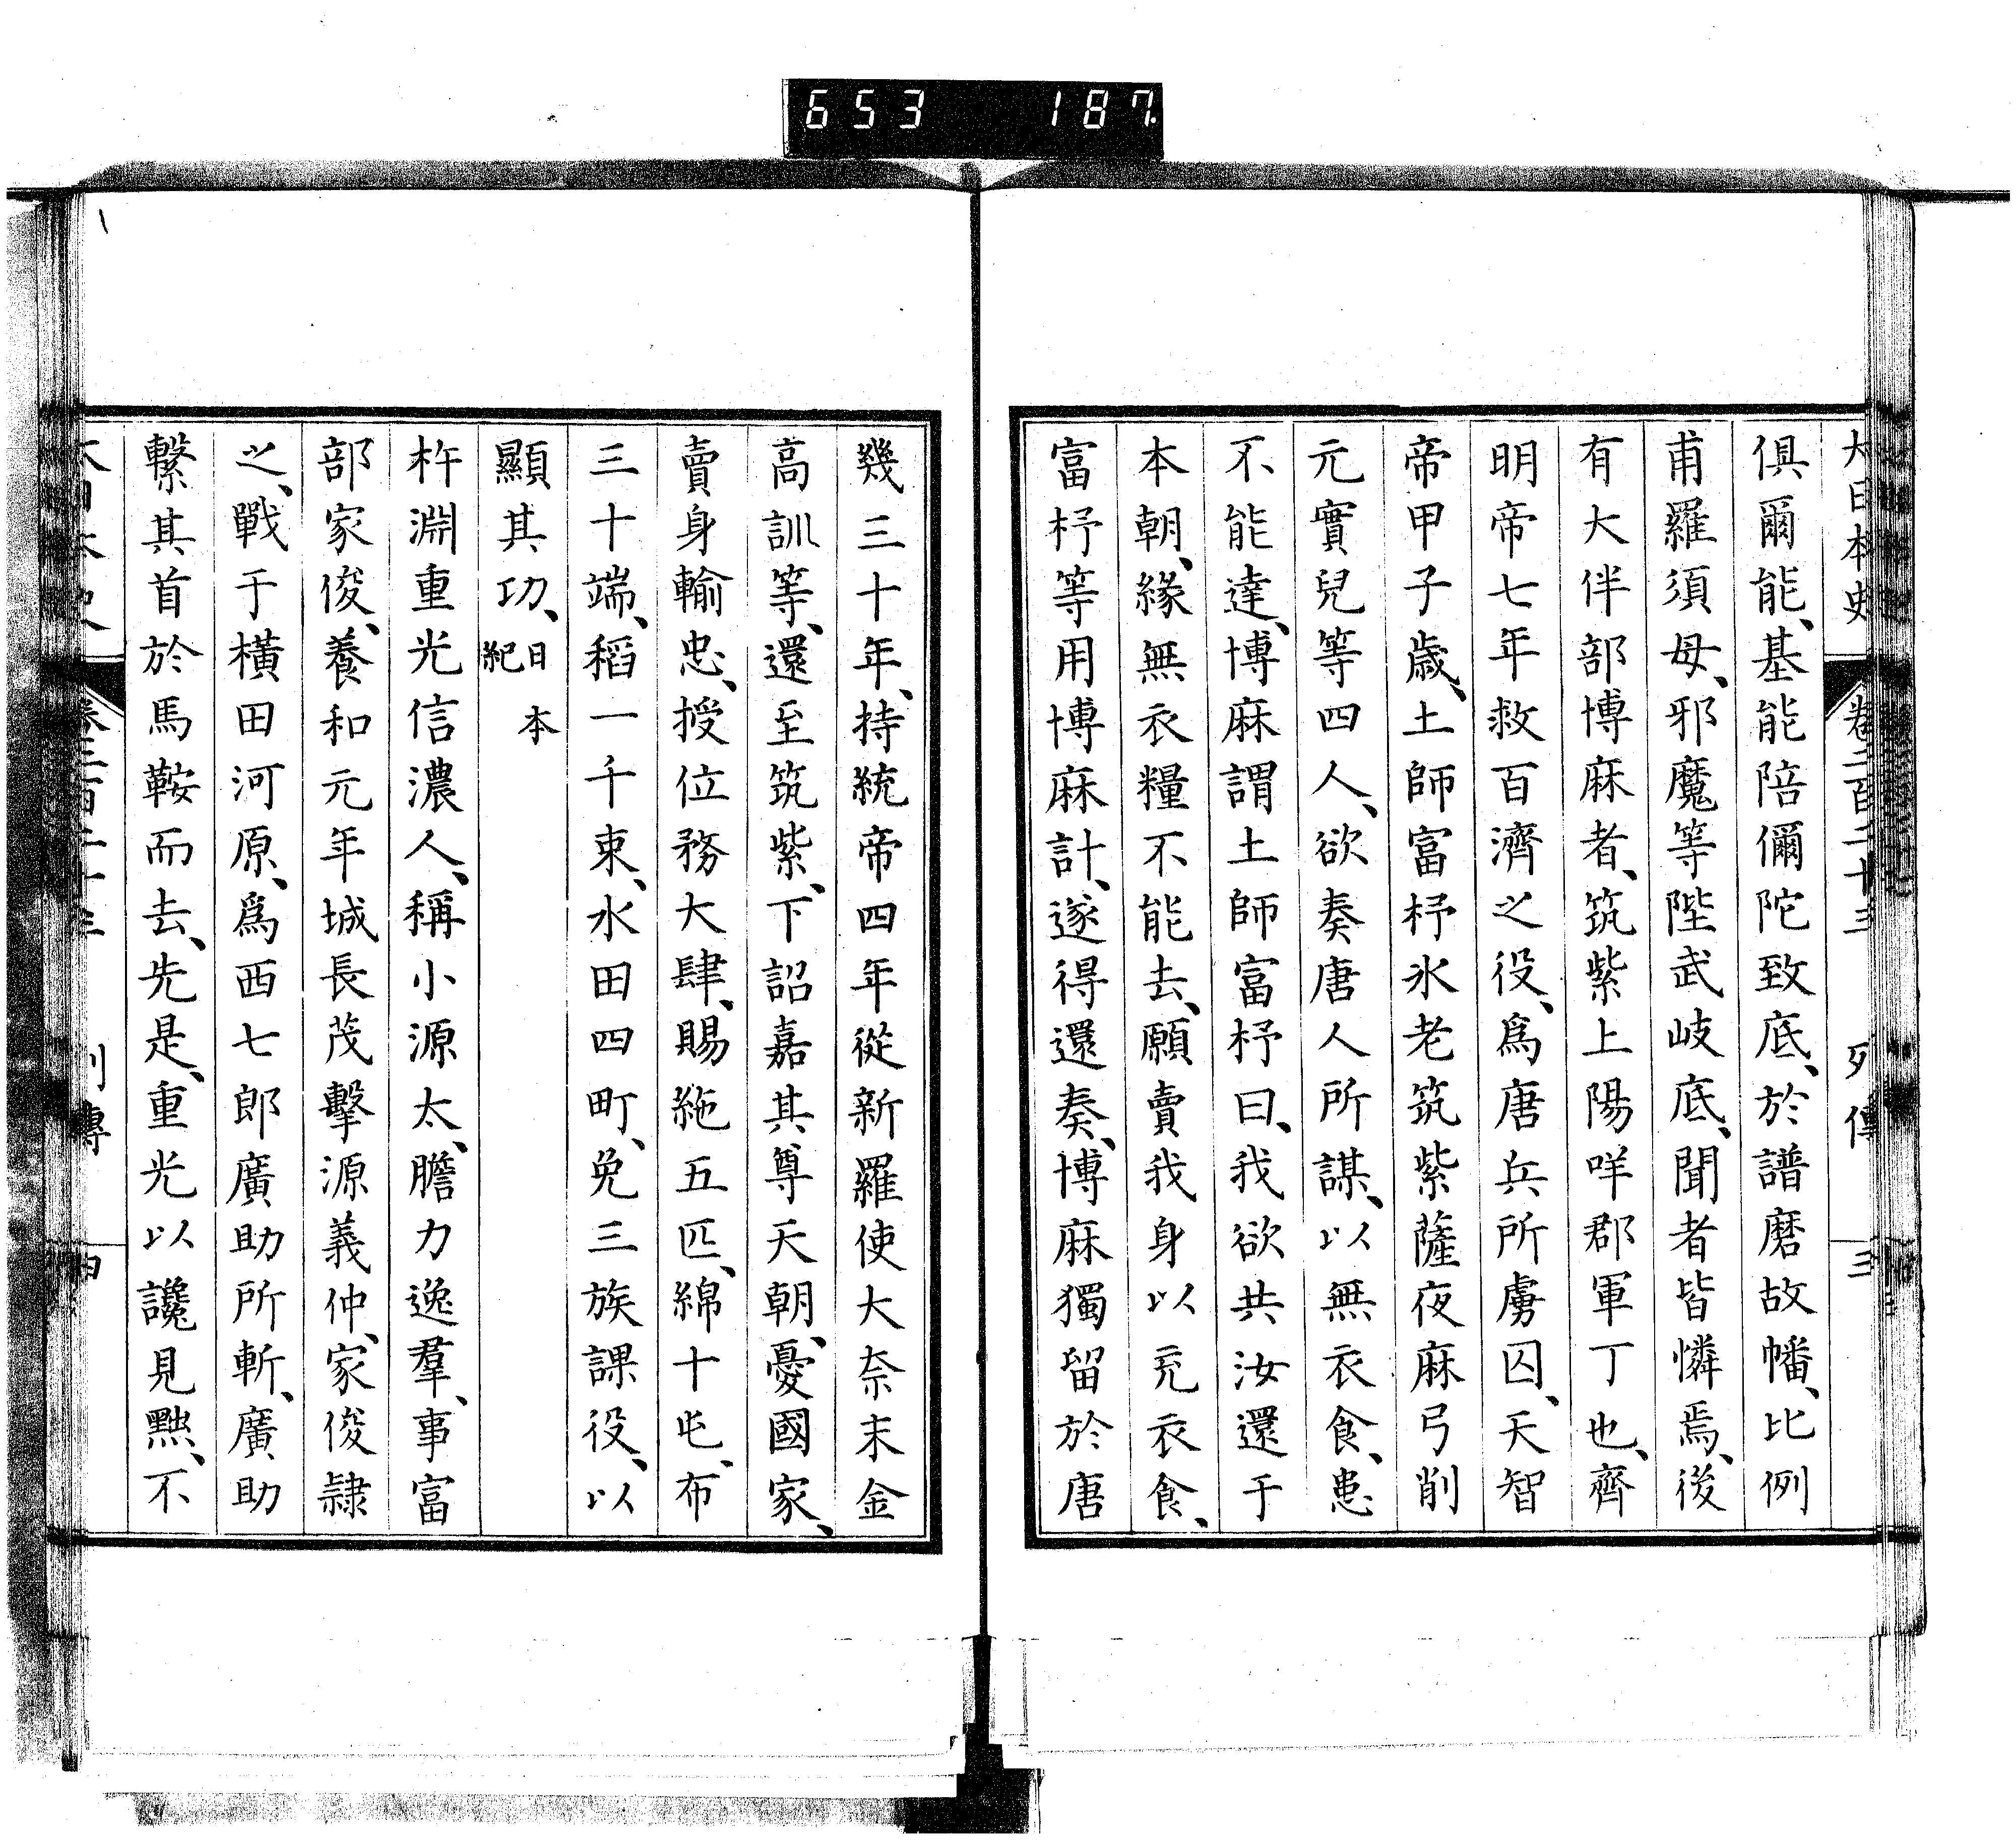 653 187
大日本史 卷二百二十三 列傳 三
俱爾能、基能陪儞陀致底、於譜磨故幡、比例
甫羅須母、邪魔等陛武岐底、聞者皆憐焉、後
有大伴部博麻者、筑紫上陽咩郡軍丁也、齊
明帝七年救百濟之役、爲唐兵所虜囚、天智
帝甲子歲、土師富杼氷老筑紫薩夜麻弓削
元實兒等四人、欲奏唐人所謀、以無衣食、患
不能達、博麻謂土師富杼曰、我欲共汝還于
本朝、緣無衣糧不能去、願賣我身以充衣食、
富杼等用博麻計、遂得還奏、博麻獨留於唐
幾三十年、持統帝四年從新羅使大奈末金
高訓等、還至筑紫、下詔嘉其尊天朝、憂國家、
賣身輸忠、授位務大肆、賜絁五匹、綿十屯、布
三十端、稻一千束、水田四町、免三族課役、以
顯其功、日本紀
杵淵重光信濃人、稱小源太、膽力逸羣、事富
部家俊、養和元年城長茂擊源義仲、家俊隷
之、戰于橫田河原、爲西七郎廣助所斬、廣助
繫其首於馬鞍而去、先是、重光以讒見黜、不